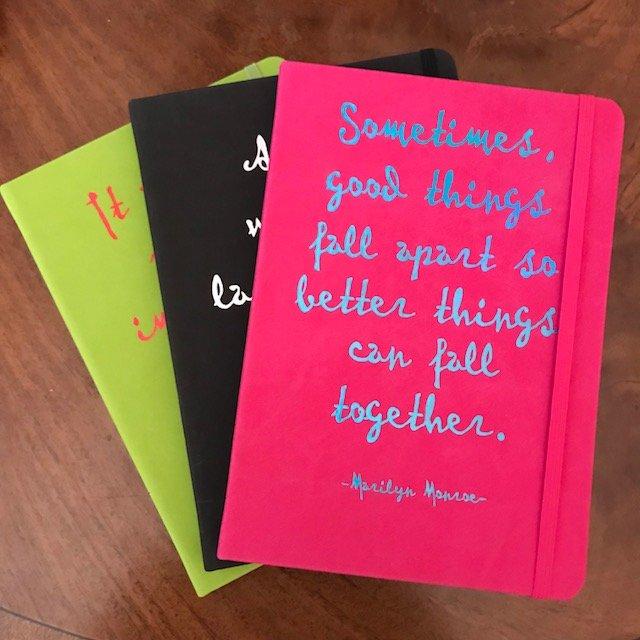 Sometimes,
good things
fall apart so
better things
can fall
together.
-Marilyn Monroe-
It